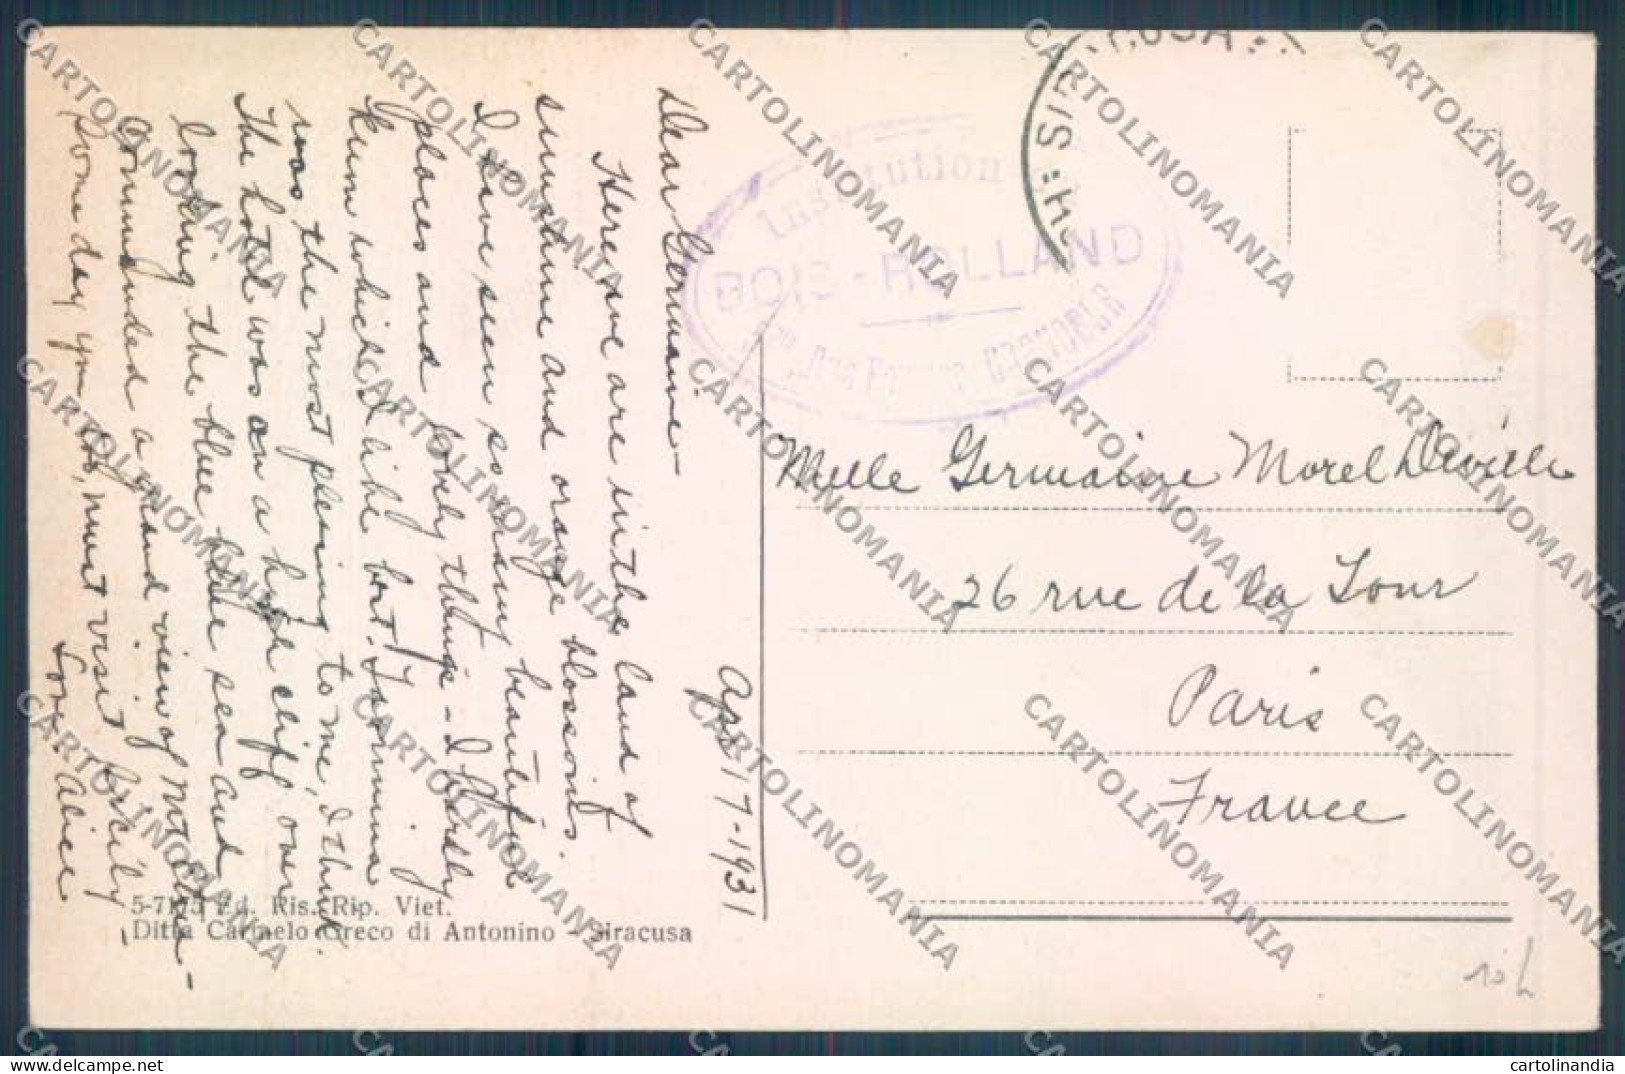 Apr 17-1931
Dear Germaine-
Here we are in the land of
sunshine and orange blossoms.
I have seen so many beautiful
places and lovely things - I hardly
know which I like best. Taormina
was the most pleasing to me, I think.
The hotel was on a high cliff over
looking the blue blue sea and
commanded a grand view of Mt Etna-
Some day you, too, must visit Sicily-
Love, Alice
5-7175 Ed. Ris. Rip. Viet.
Ditta Carmelo Greco di Antonino - Siracusa
Institution
BOIS-ROLLAND
GRENOBLE
Melle Germaine Morel Deville
26 rue de la Tour
Paris
France
CARTOLINOMANIA
cartolinandia